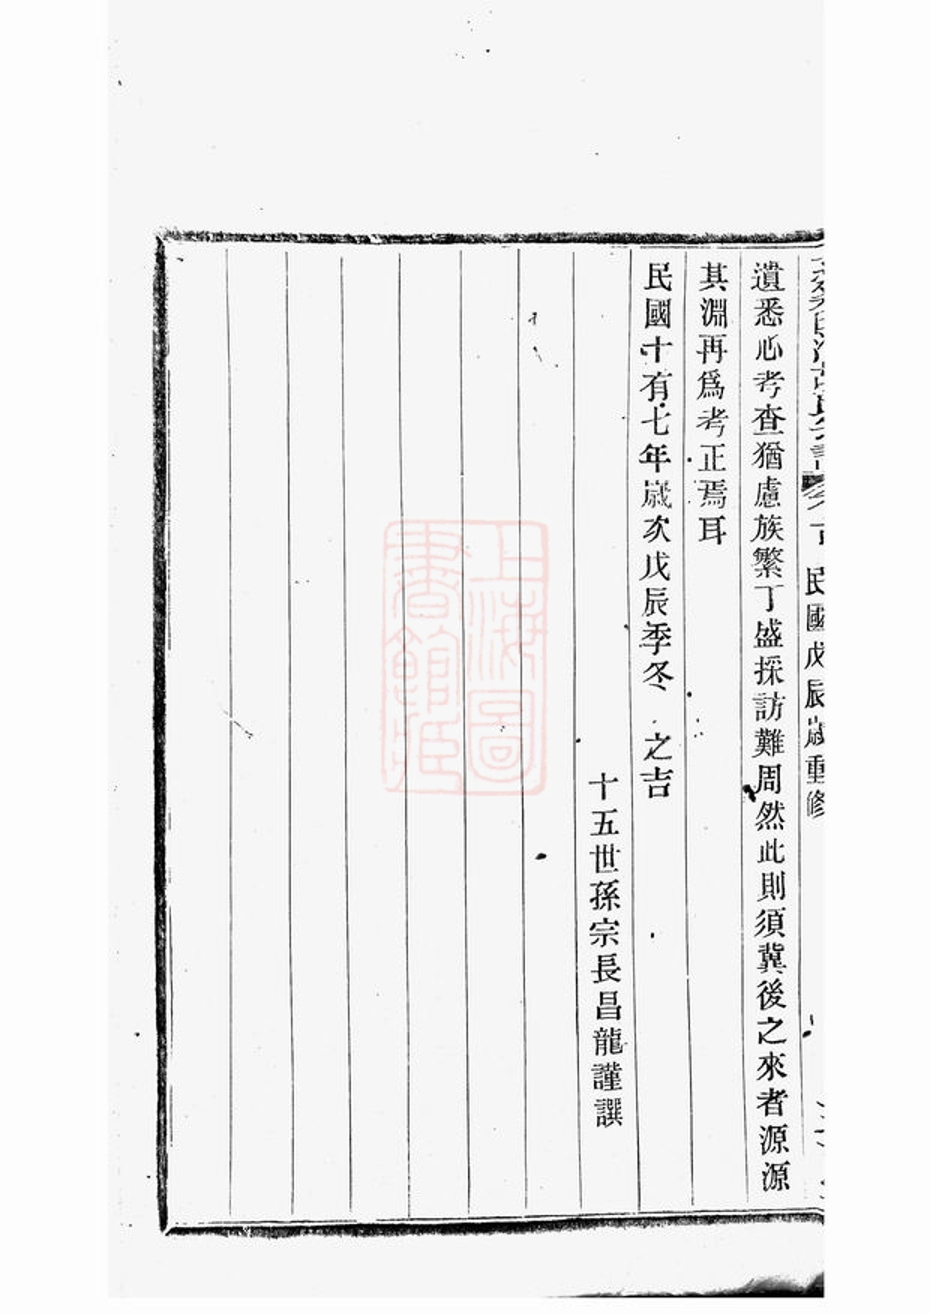 民國戊辰歲重修
遺悉心考查猶慮族繁丁盛採訪難周然此則須冀後之來者源源
其淵再爲考正焉耳
民國十有七年歲次戊辰季冬 之吉
十五世孫宗長昌龍謹譔
上海圖
書館藏